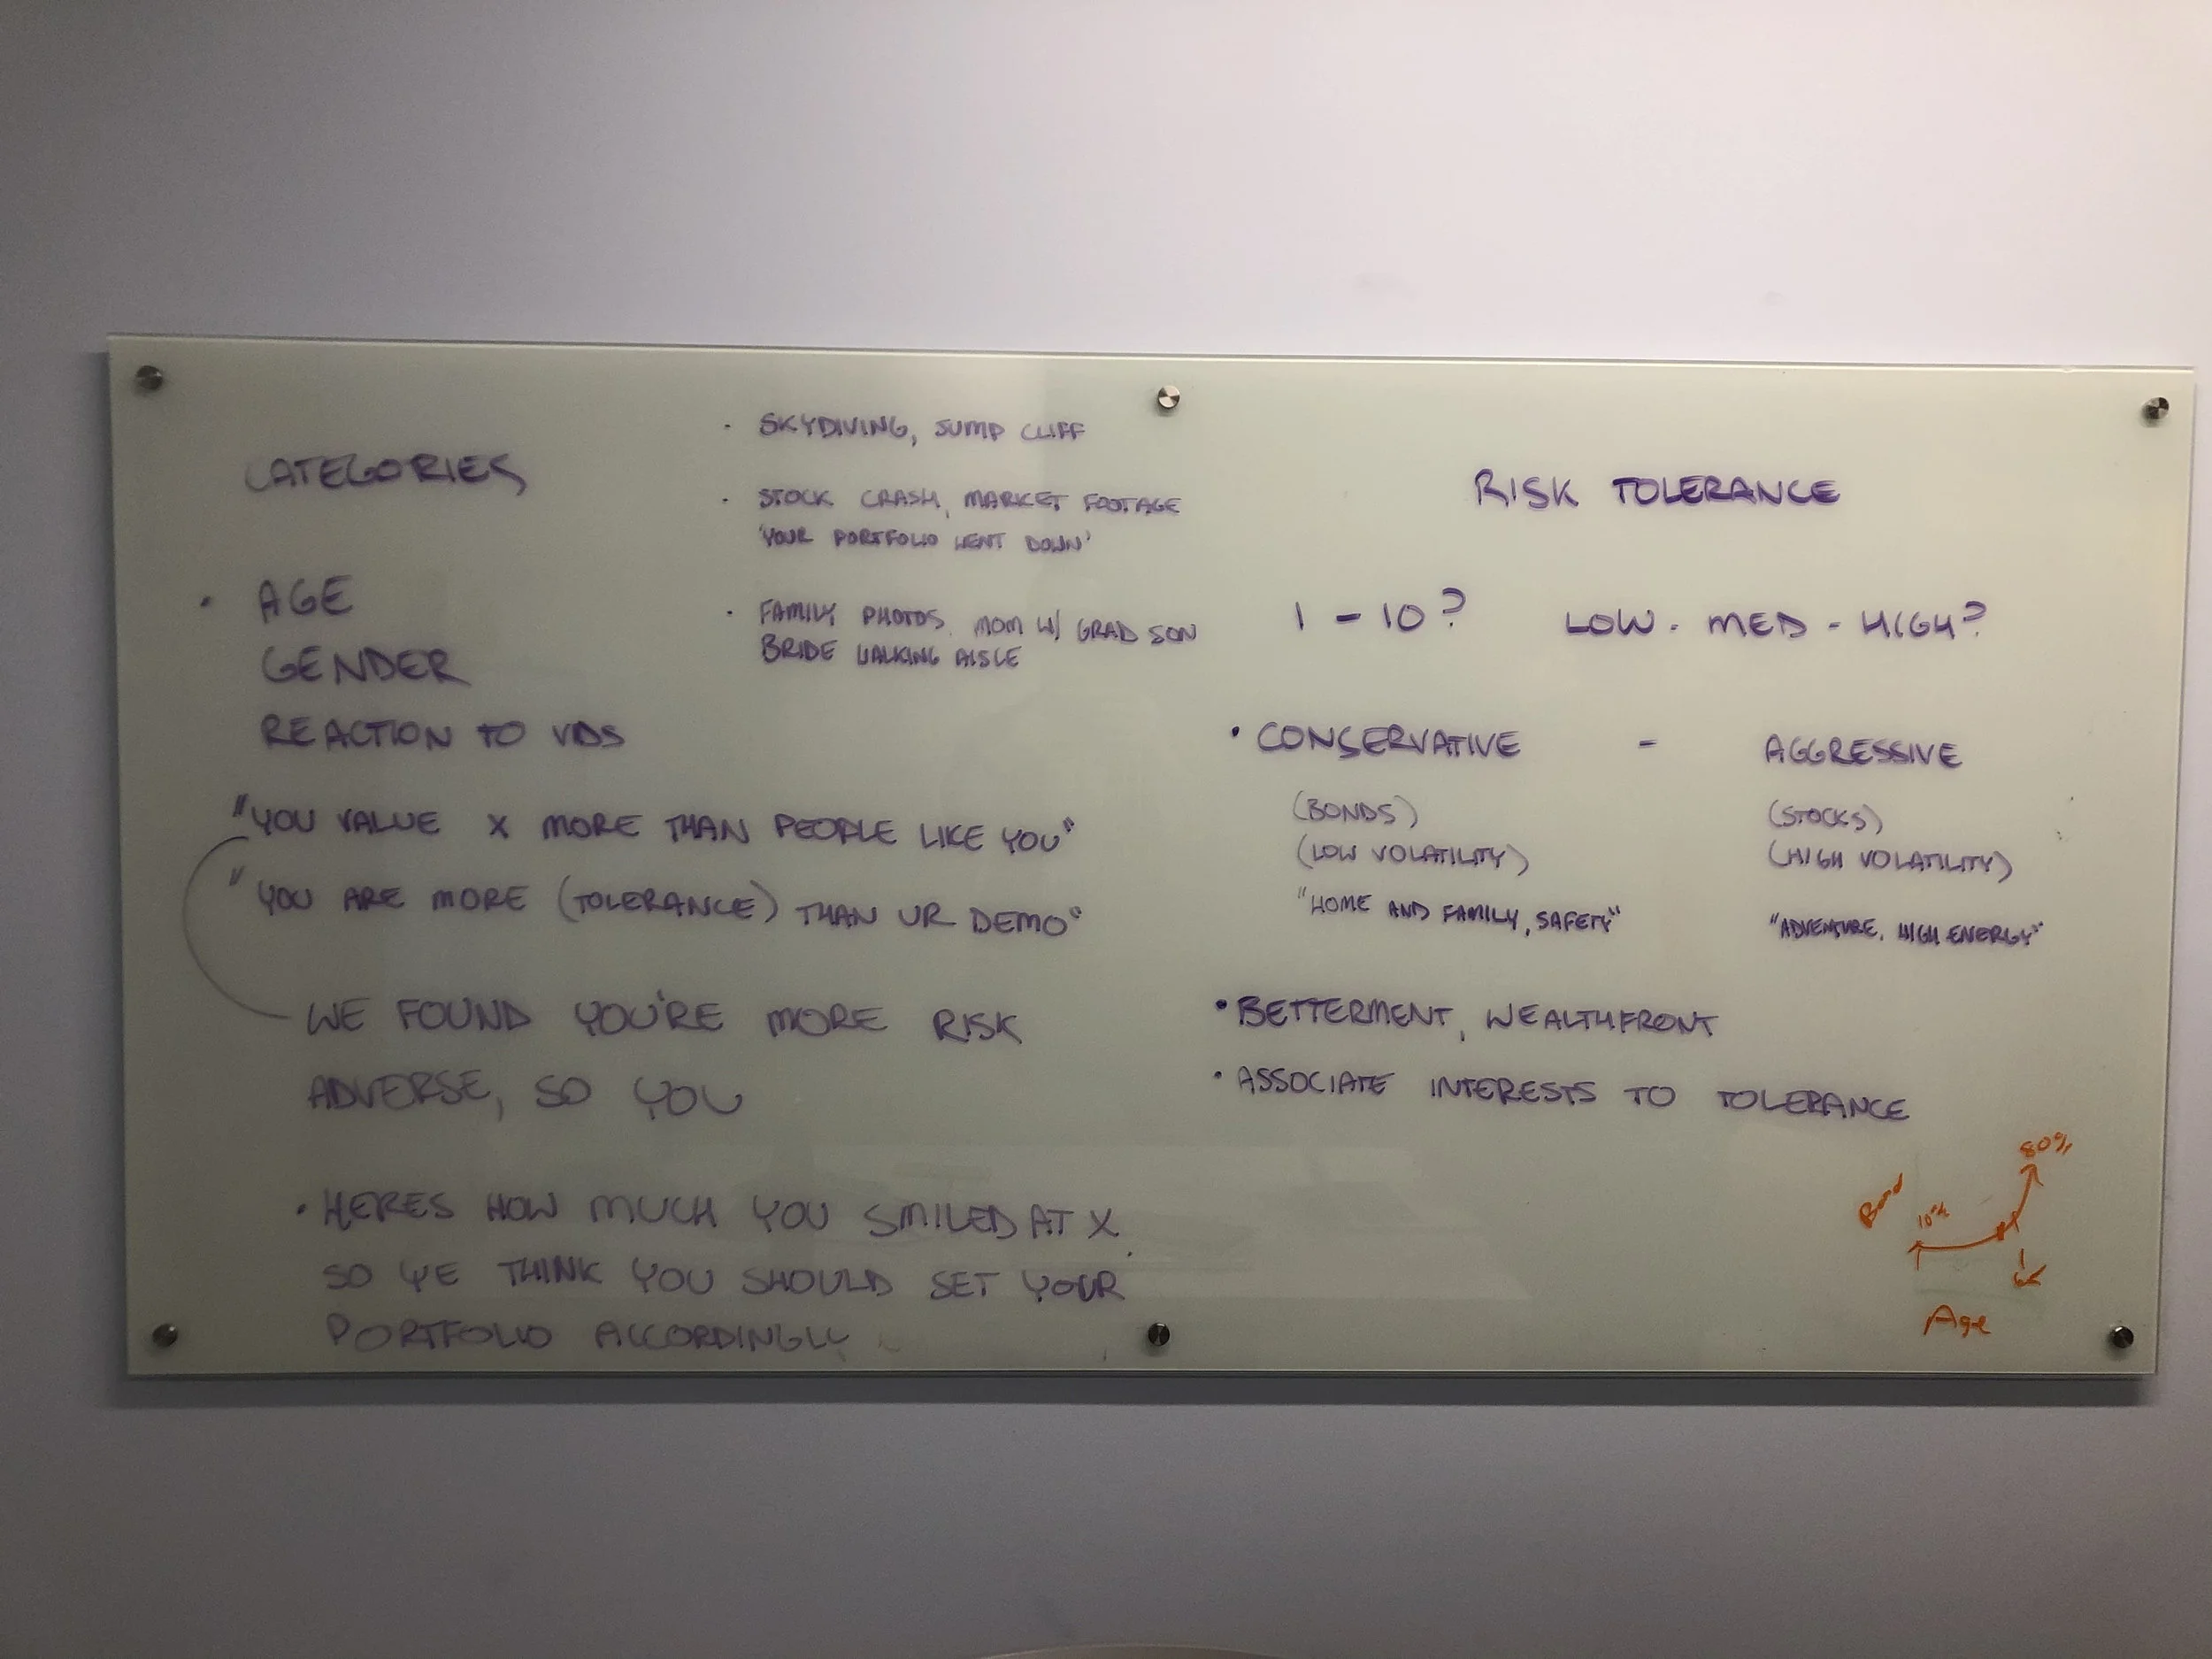 CATEGORIES
• AGE
GENDER
REACTION TO VIDS
• SKYDIVING, JUMP CLIFF
• STOCK CRASH, MARKET FOOTAGE
'YOUR PORTFOLIO WENT DOWN'
• FAMILY PHOTOS, MOM W/ GRAD SON
BRIDE WALKING AISLE
"YOU VALUE X MORE THAN PEOPLE LIKE YOU"
"YOU ARE MORE (TOLERANCE) THAN UR DEMO"
WE FOUND YOU'RE MORE RISK
ADVERSE, SO YOU
• HERES HOW MUCH YOU SMILED AT X
SO WE THINK YOU SHOULD SET YOUR
PORTFOLIO ACCORDINGLY
RISK TOLERANCE
1 - 10? LOW - MED - HIGH?
• CONSERVATIVE - AGGRESSIVE
(BONDS) (STOCKS)
(LOW VOLATILITY) (HIGH VOLATILITY)
"HOME AND FAMILY, SAFETY" "ADVENTURE, HIGH ENERGY"
• BETTERMENT, WEALTHFRONT
• ASSOCIATE INTERESTS TO TOLERANCE
80%
Bond
10%
Age